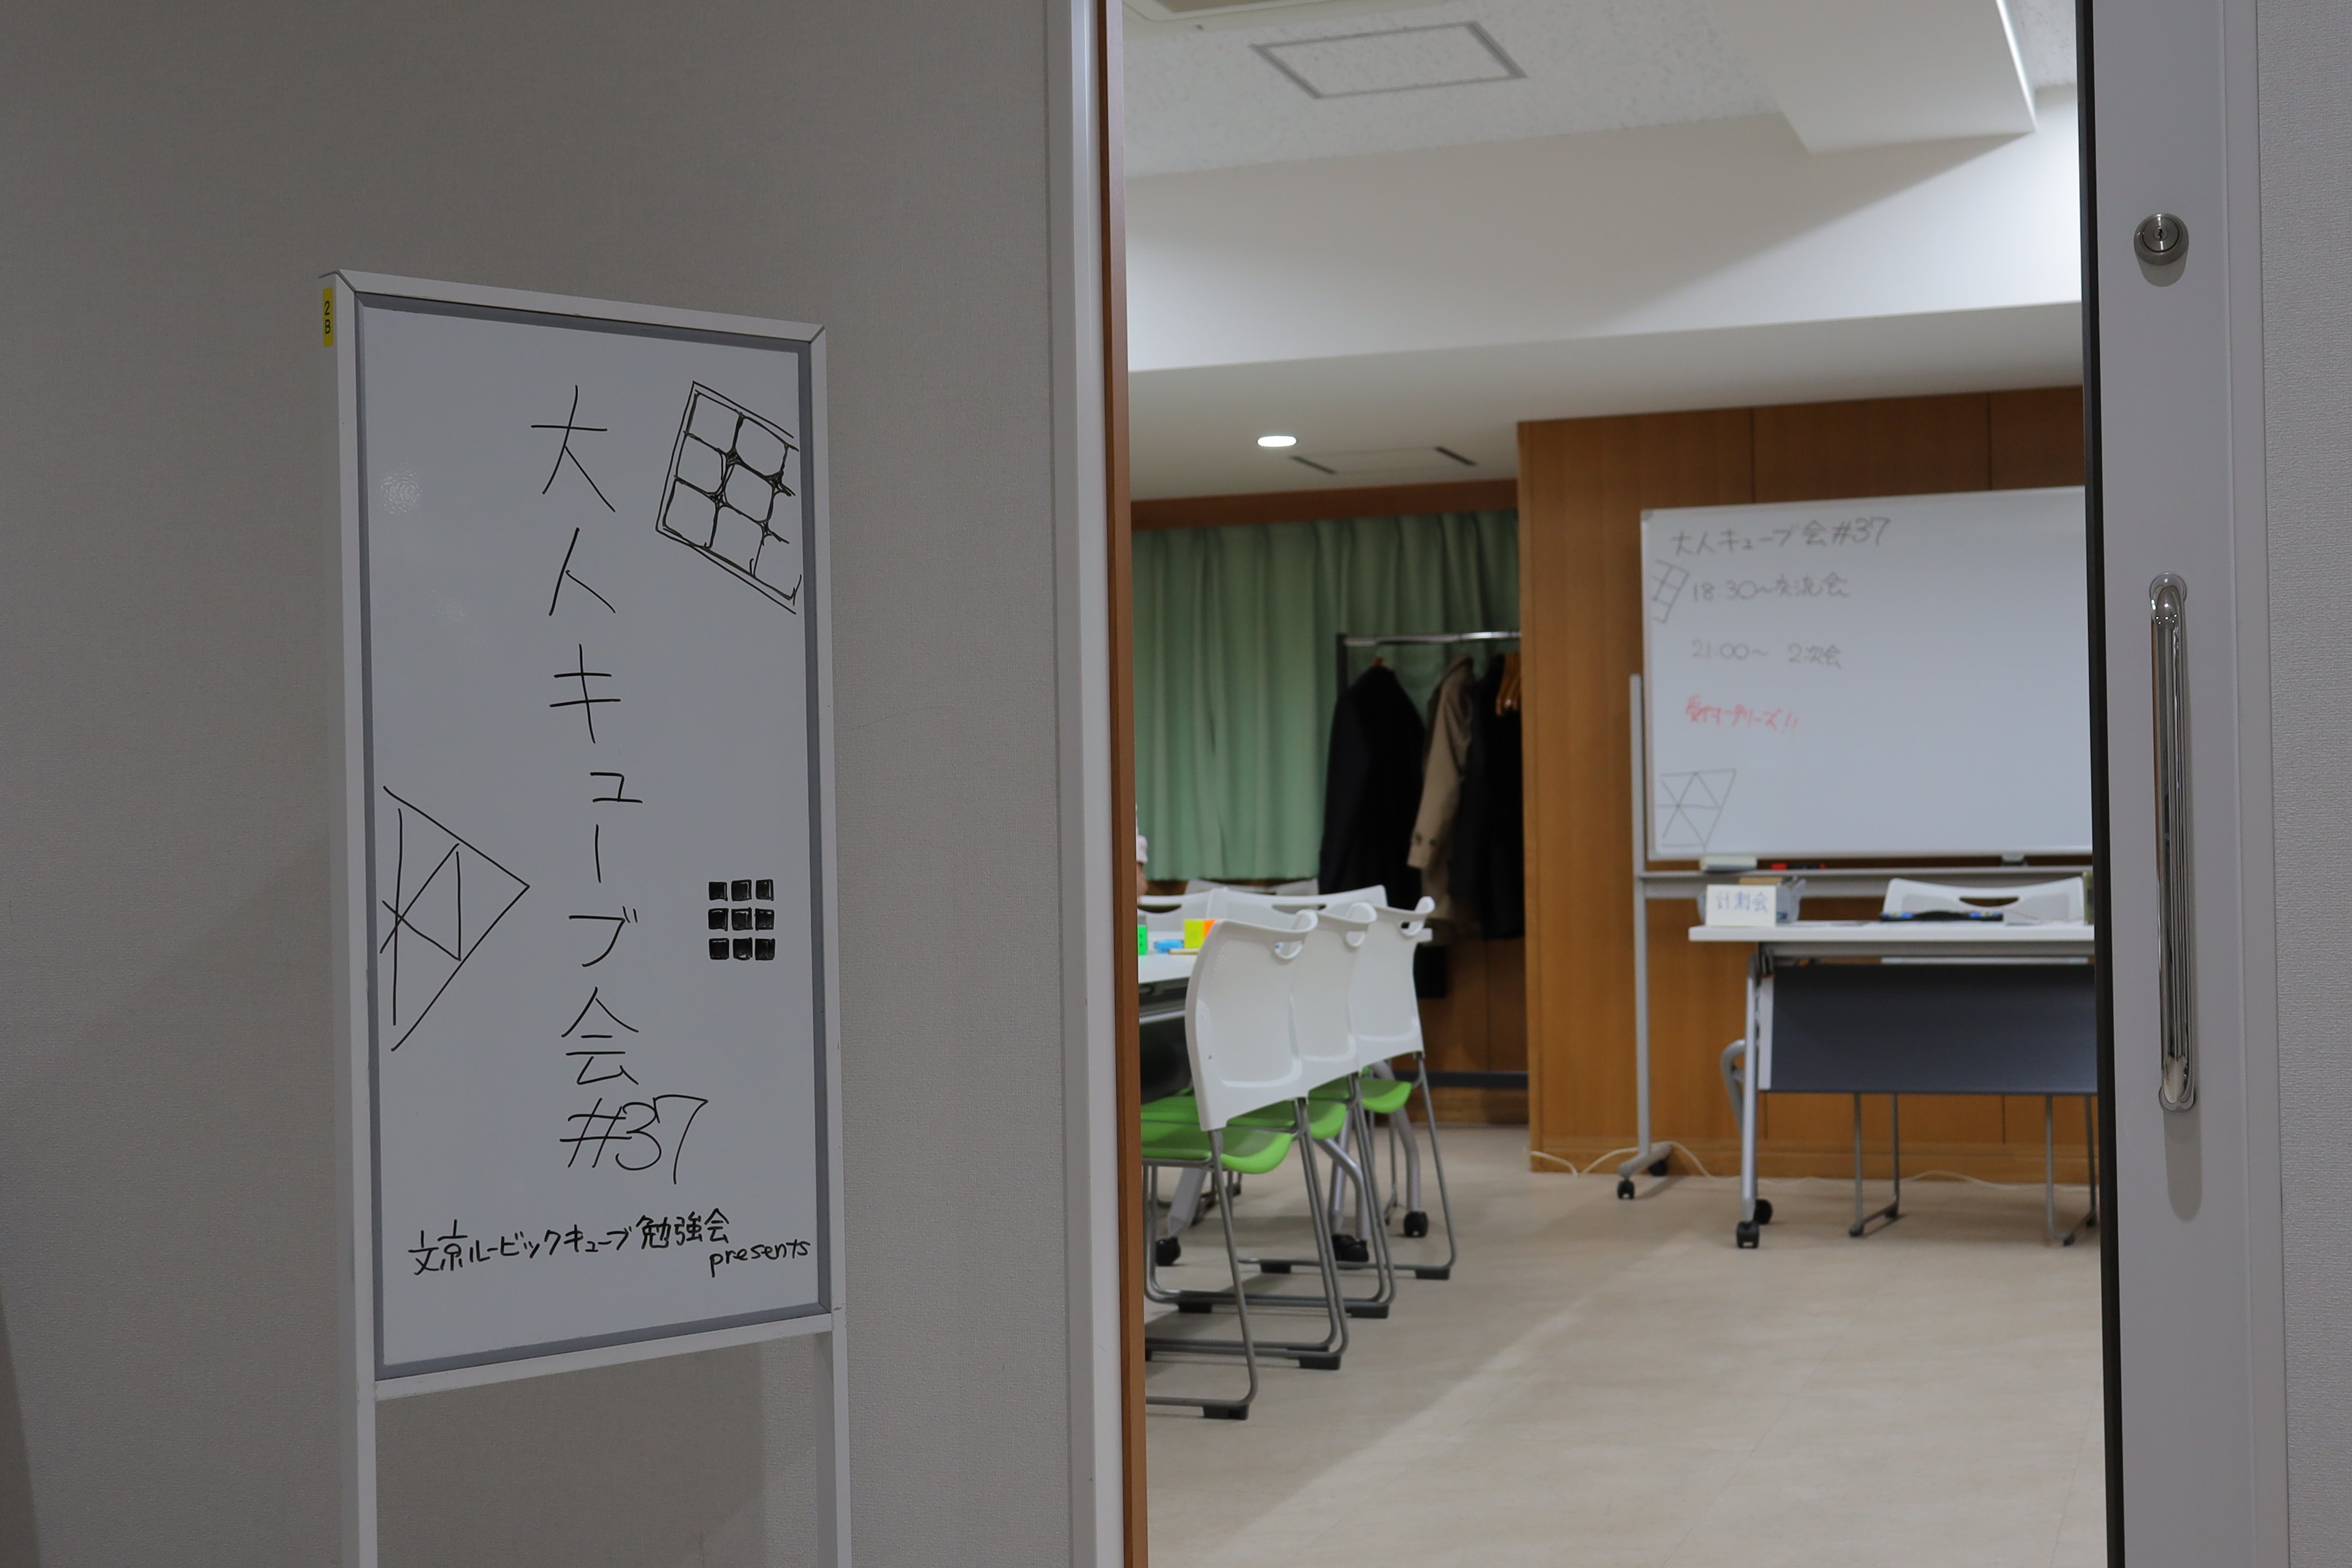 2B
大人キューブ会
#37
文京ルービックキューブ勉強会
presents
大人キューブ会#37
18:30〜交流会
21:00〜 2次会
計測会